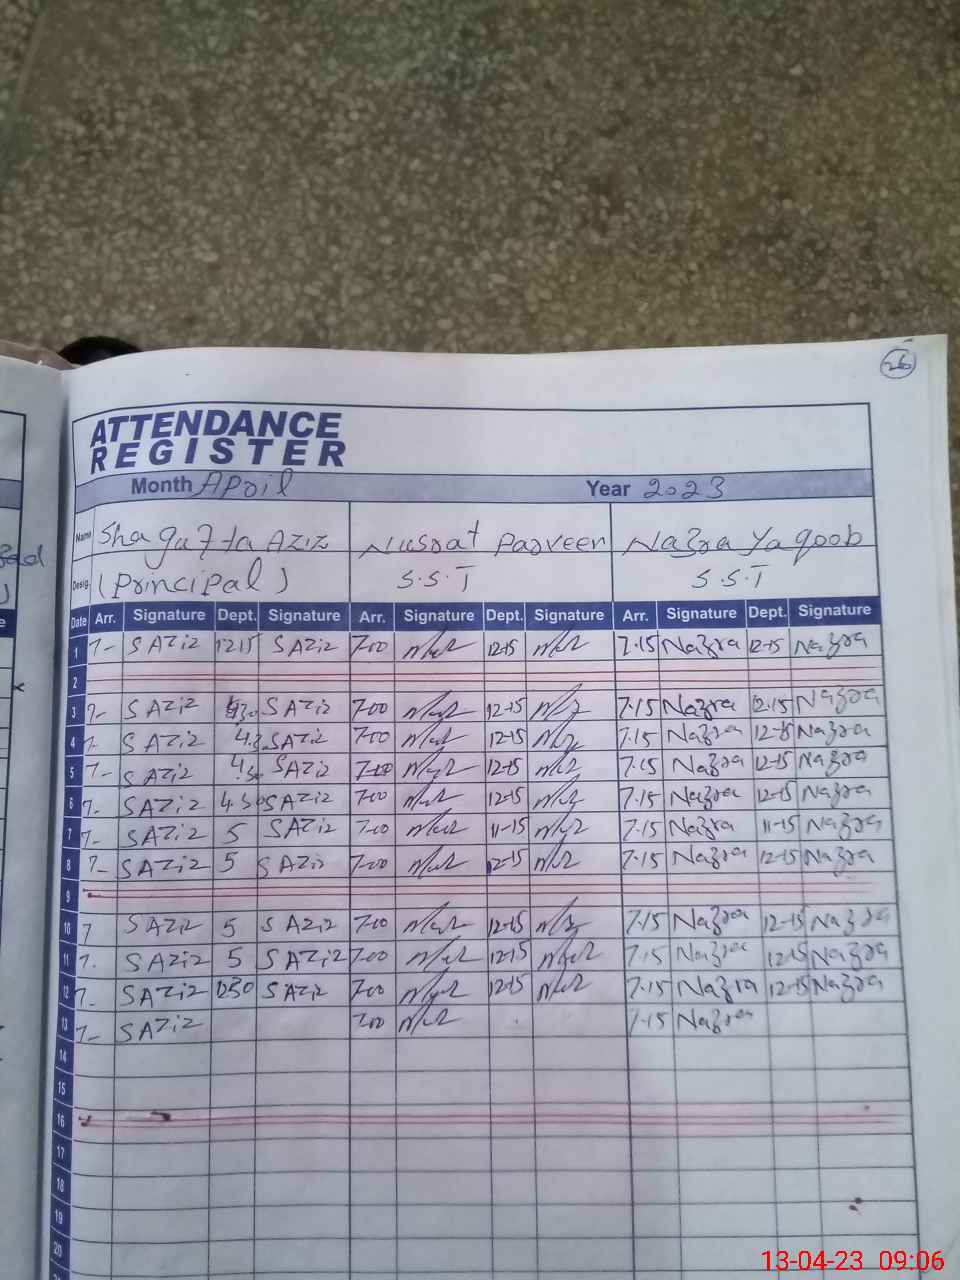 26
ATTENDANCE
REGISTER
Month April Year 2023
Name Shagufta Aziz Nusrat Parveen Nazra Yaqoob
Desig. (Principal) S.S.T S.S.T
Date Arr. Signature Dept. Signature Arr. Signature Dept. Signature Arr. Signature Dept. Signature
1 7- SAziz 1215 SAziz 7:00 12-15 7.15 Nazra 12-15 Nazra
2
3 7- SAziz 4.30 SAziz 7:00 12-15 7.15 Nazra 12.15 Nazra
4 7- SAziz 4.3 SAziz 7:00 12-15 7.15 Nazra 12-15 Nazra
5 7- SAziz 4.30 SAziz 7:00 12-15 7.15 Nazra 12-15 Nazra
6 7- SAziz 4.30 SAziz 7:00 12-15 7.15 Nazra 12-15 Nazra
7 7- SAziz 5 SAziz 7:00 11-15 7.15 Nazra 11-15 Nazra
8 7- SAziz 5 SAziz 7:00 12-15 7.15 Nazra 12-15 Nazra
9
10 7 SAziz 5 SAziz 7:00 12-15 7.15 Nazra 12-15 Nazra
11 7. SAziz 5 SAziz 7:00 12-15 7.15 Nazra 12-15 Nazra
12 7- SAziz 1230 SAziz 7:00 12-15 7.15 Nazra 12-15 Nazra
13 7- SAziz 7:00 7.15 Nazra
14
15
16
17
18
19
20
13-04-23 09:06